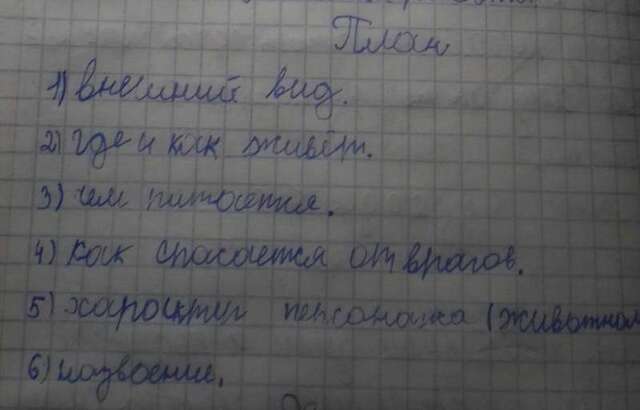 План
1) внешний вид.
2) где и как живёт.
3) чем питается.
4) как спасается от врагов.
5) характер персонажа (животном
6) название.